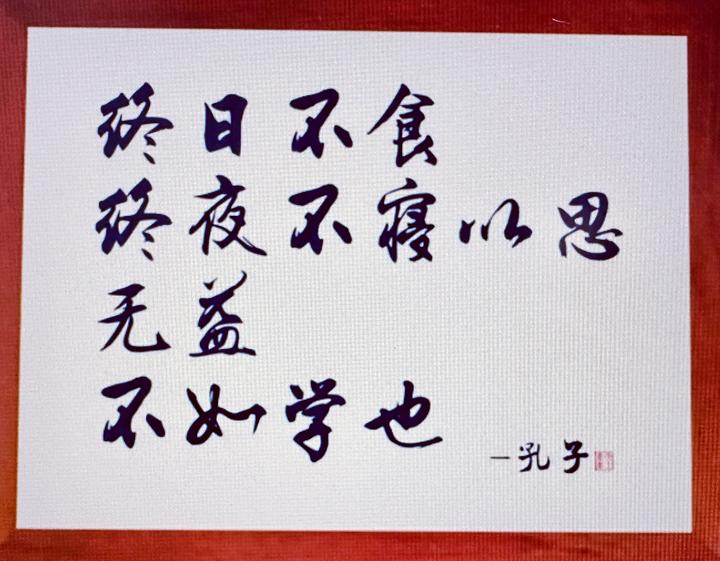 终日不食
终夜不寝以思
无益
不如学也
—孔子